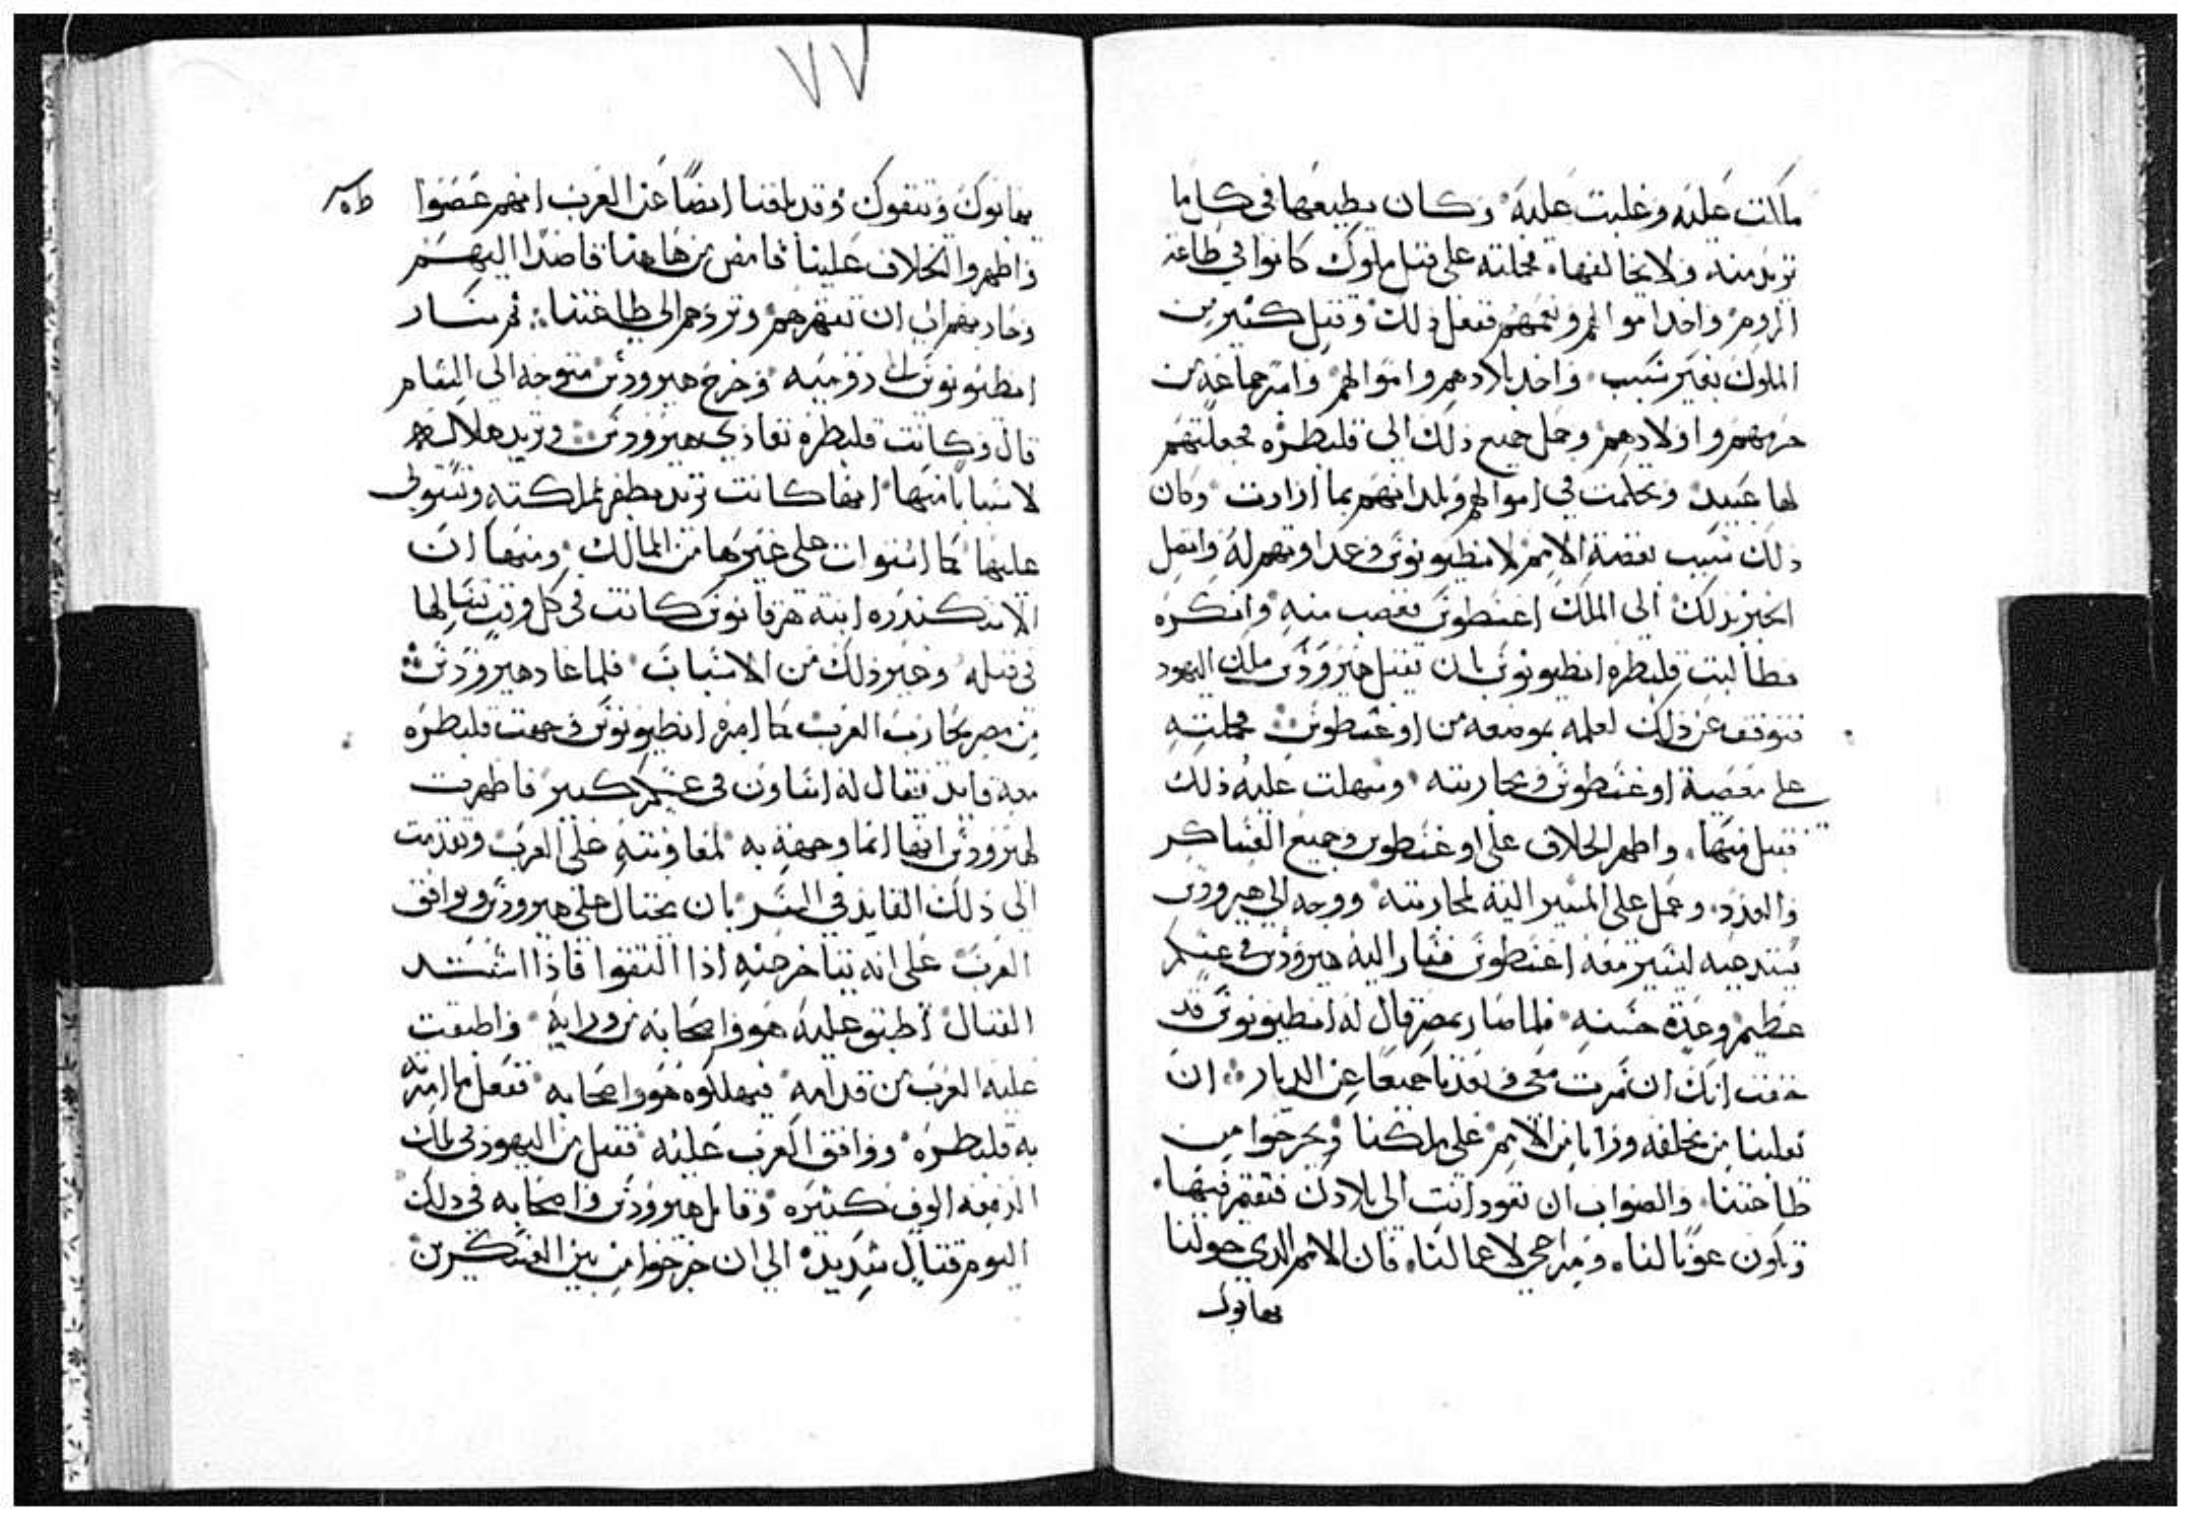 ملكت عليه وغلبت عليه وكان يطيعها في كل ما
تريد منه ولا يخالفها فحملته على قتل ملوك كانوا في طاعة
الروم واخد اموالهم ونعمهم ففعل ذلك وقتل كثير من
الملوك بغير سبب واخد بلادهم واموالهم وامر جماعة من
حرمهم واولادهم وحمل جميع ذلك الى قلبطره فجعلتهم
لها عبيد وتحكمت في اموالهم وبلدانهم بما ارادت وكان
ذلك سبب بغضة الامم لانطيونوس وعداوتهم له واتصل
الخبر بذلك الى الملك اغسطوس فغضب منه وانكره
فطالبت قلبطره انطيونوس بان يقتل هيرودس ملك اليهود
فتوقف عن ذلك لعلمه بموضعه من اوغسطوس فحملته
على معصية اوغسطوس ومحاربته وسهلت عليه ذلك
فقبل منها واظهر الخلاف على اوغسطوس وجمع العساكر
والعدد وعمل على المسير اليه لمحاربته ووجه الى هيرودس
يستدعيه ليسير معه اغسطوس فسار اليه هيرودس في عسكر
عظيم وعدة حسنه فلما صار بمصر قال له انطيونوس قد
خفت انك ان سرت معي وبعدنا جميعا عن الديار ان
تغلبنا من نخلفه ورانا من الامم على ملكنا ويخرجوا من
طاعتنا والصواب ان تعود انت الى بلادك فتقيم فيها
وتكون عونا لنا ومراعي لاعمالنا فان الامم الدي حولنا
يهابوك
٧٧
يهابوك ويتقوك وقد بلغنا ايضا عن العرب انهم عصوا
واظهروا الخلاف علينا فامض من هاهنا قاصدا اليهم
وحاربهم الى ان تقهرهم وتردهم الى طاعتنا ثم سار
انطيونوس الى روميه وخرج هيرودس متوجه الى الشام
قال وكانت قلبطره تعادي هيرودس وتريد هلاكه
لاسباب منها انها كانت تريد تظفر بمملكته وتستولى
عليها كما استوات على غيرها من الممالك ومنها ان
الاسكندره ابنة هرقانوس كانت في كل وقت تسالها
في قتله وغير ذلك من الاسباب فلما عاد هيرودس
من مصر يحارب العرب كما امره انطيونوس وجهت قلبطره
معه قايد يقال له اثناون في عسكر كبير فاظهرت
لهيرودس انها انما وجهته به لمعاونته على العرب وتقدمت
الى ذلك القايد في السر بان يحتال على هيرودس ويوافق
العرب على انه يتاخر عنه اذا التقوا فاذا اشتد
القتال اطبق عليه هو واصحابه من ورايه واطبقت
عليه العرب من قدامه فيهلكوه هو واصحابه ففعل ما امرته
به قلبطره ووافق العرب عليه فقتل من اليهود في تلك
الدفعه الوف كثيره وقاتل هيرودس واصحابه في ذلك
اليوم قتال شديد الى ان خرجوا من بين العسكرين